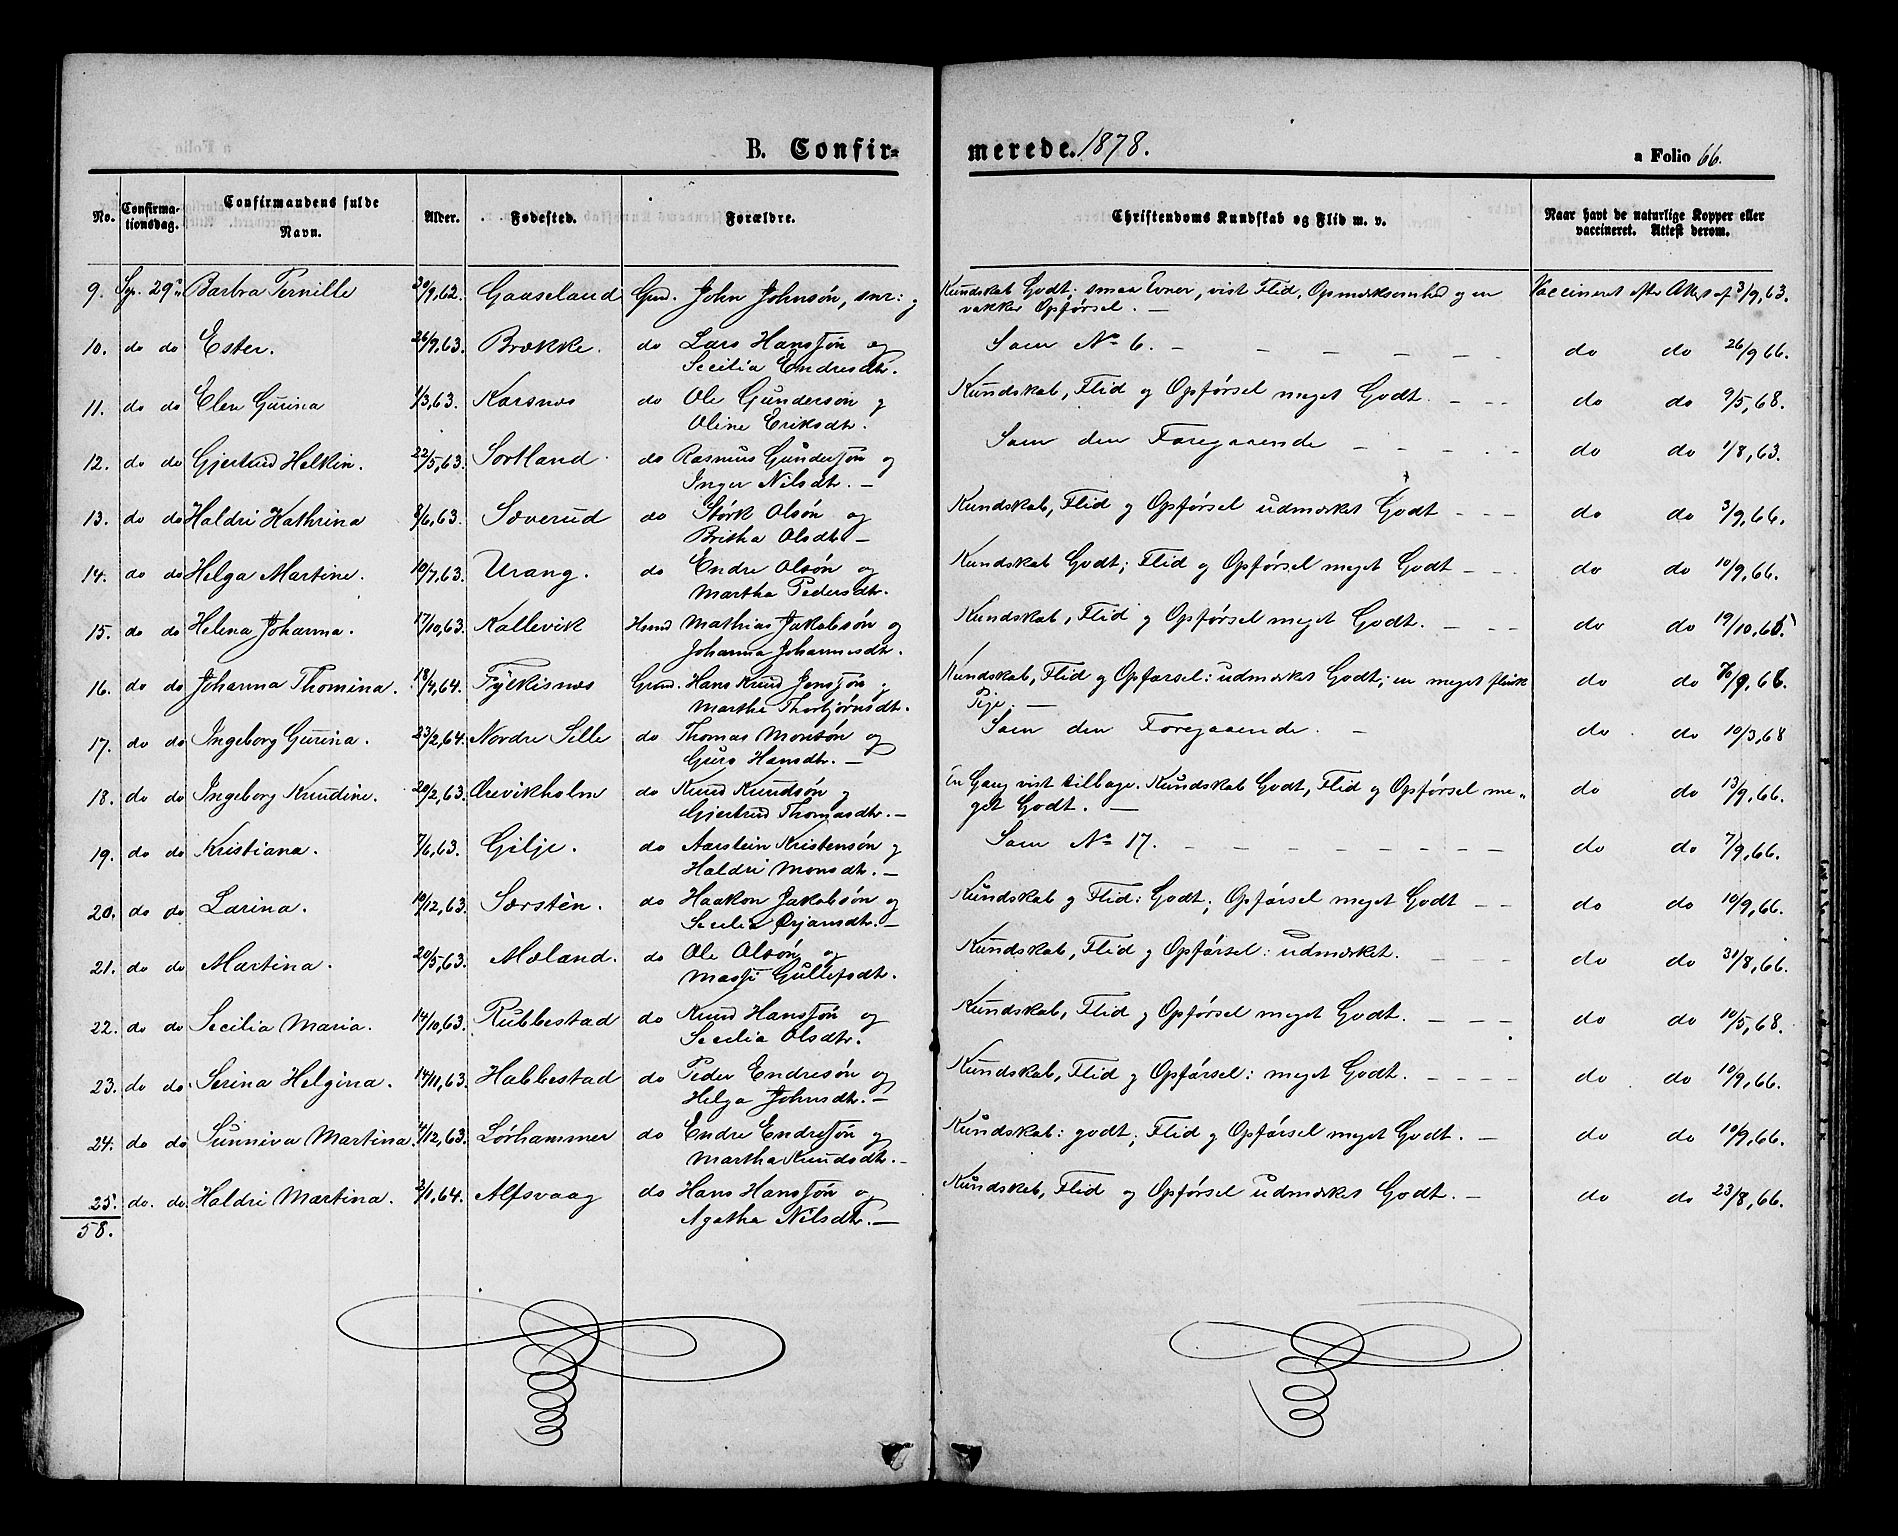 B. Confir-
merede. 1878.
a Folio 66.
No. Confirma-tionsdag. Confirmandens fulde Navn. Alder. Fødested. Forældre. Christendoms Kundskab og Flid m. v. Naar havt de naturlige Kopper eller vaccineret. Attest derom.
9. Sep. 29de Barbra Pernille 29/9,62. Gaaseland Grd. John Johnsøn, snr: g Kundskab Godt; smaa Evner, vist Flid, Opmærksomhed og en Vaccineret efter Attest af 3/9,63.
vakker Opførsel. —
10. do do Ester. 26/9,63. Brække. do Lars Hanssøn og Som No 6. — do do 26/9 66.
Secilia Endresdtr.
11. do do Elen Gurina 1/3,63. Karsnæs do Ole Gunderson g Kundskab, Flid g Opførsel meget Godt. do do 9/5,68.
Oline Eriksdtr.
12. do do Gjertrud Helkin. 22/5,63. Sortland. do Rasmus Gunderssøn og Som den Foregaaende — do do 1/8,63.
Inger Nilsdtr. —
13. do do Haldri Kathrina 8/6,63. Sæverud do Størk Olsøn og Kundskab, Flid g Opførsel udmærket Godt — do do 3/9,66.
Britha Olsdtr. —
14. do do Helga Martine. 10/7,63. Urang. do Endre Olsøn og Kundskab Godt; Flid g Opførsel meget Godt — do do 10/9,66.
Martha Pedersdtr.
15. do do Helena Johanna. 17/10,63. Kallevik Huusd Mathias Jakobsøn og Kundskab, Flid g Opførsel meget Godt. — do do 19/10,65
Johanna Johannesdtr.
16. do do Johanna Thomina. 18/4,64. Fylkisnæs Grd. Hans Knud Jenssøn g Kundskab, Flid g Opførsel: udmærket Godt; en meget flink do do 10/9,66.
Martha Thorbjørnsdtr. Pige. —
17. do do Ingeborg Gurina. 23/2,64. Nordre Selle do Thomas Monsøn og Som den Foregaaende. — do do 10/3,68
Guro Hansdtr. —
18. do do Ingeborg Knudine. 20/2,63. Ørevikholm do Knud Knudsøn g En Gang vist tilbage. Kundskab Godt, Flid g Opførsel me- do do 13/9,66.
Gjertrud Thomasdtr. — get Godt. —
19. do do Kristiana. 7/6,63. Gilje. do Aarstein Kristensøn g Som No 17. — do do 7/9,66.
Haldri Monsdtr. —
20. do do Larina. 10/12,63. Særstèn. do Haakon Jakobsøn og Kundskab g Flid: Godt; Opførsel meget Godt — do do 10/9,66.
Secilia Ørjansdtr. —
21. do do Martina. 20/5,63. Mæland. do Ole Olsøn og Kundskab, Flid g Opførsel: udmærket. do do 31/8,66.
Massi Gullefsdtr.
22. do do Secilia Maria. 14/10,63. Rubbestad do Knud Hanssøn og Kundskab, Flid g Opførsel meget Godt. — do do 10/5,68.
Secilia Olsdtr.
23. do do Serina Helgina. 14/11,63. Habbestad do Peder Endresøn og Kundskab, Flid g Opførsel: meget Godt. — do do 10/9,66.
Helga Johnsdtr. —
24. do do Sunniva Martina. 4/12,63. Lørhammer do Endre Endressøn g Kundskab: godt; Flid g Opførsel meget Godt. — do do 10/9,66.
Martha Knudsdtr. —
25. do. do. Haldri Martina. 2/1,64. Alfsvaag do Hans Hanssøn og Kundskab, Flid og Opførsel udmærket Godt. — do do 23/8,66.
Agatha Nilsdtr. —
58.